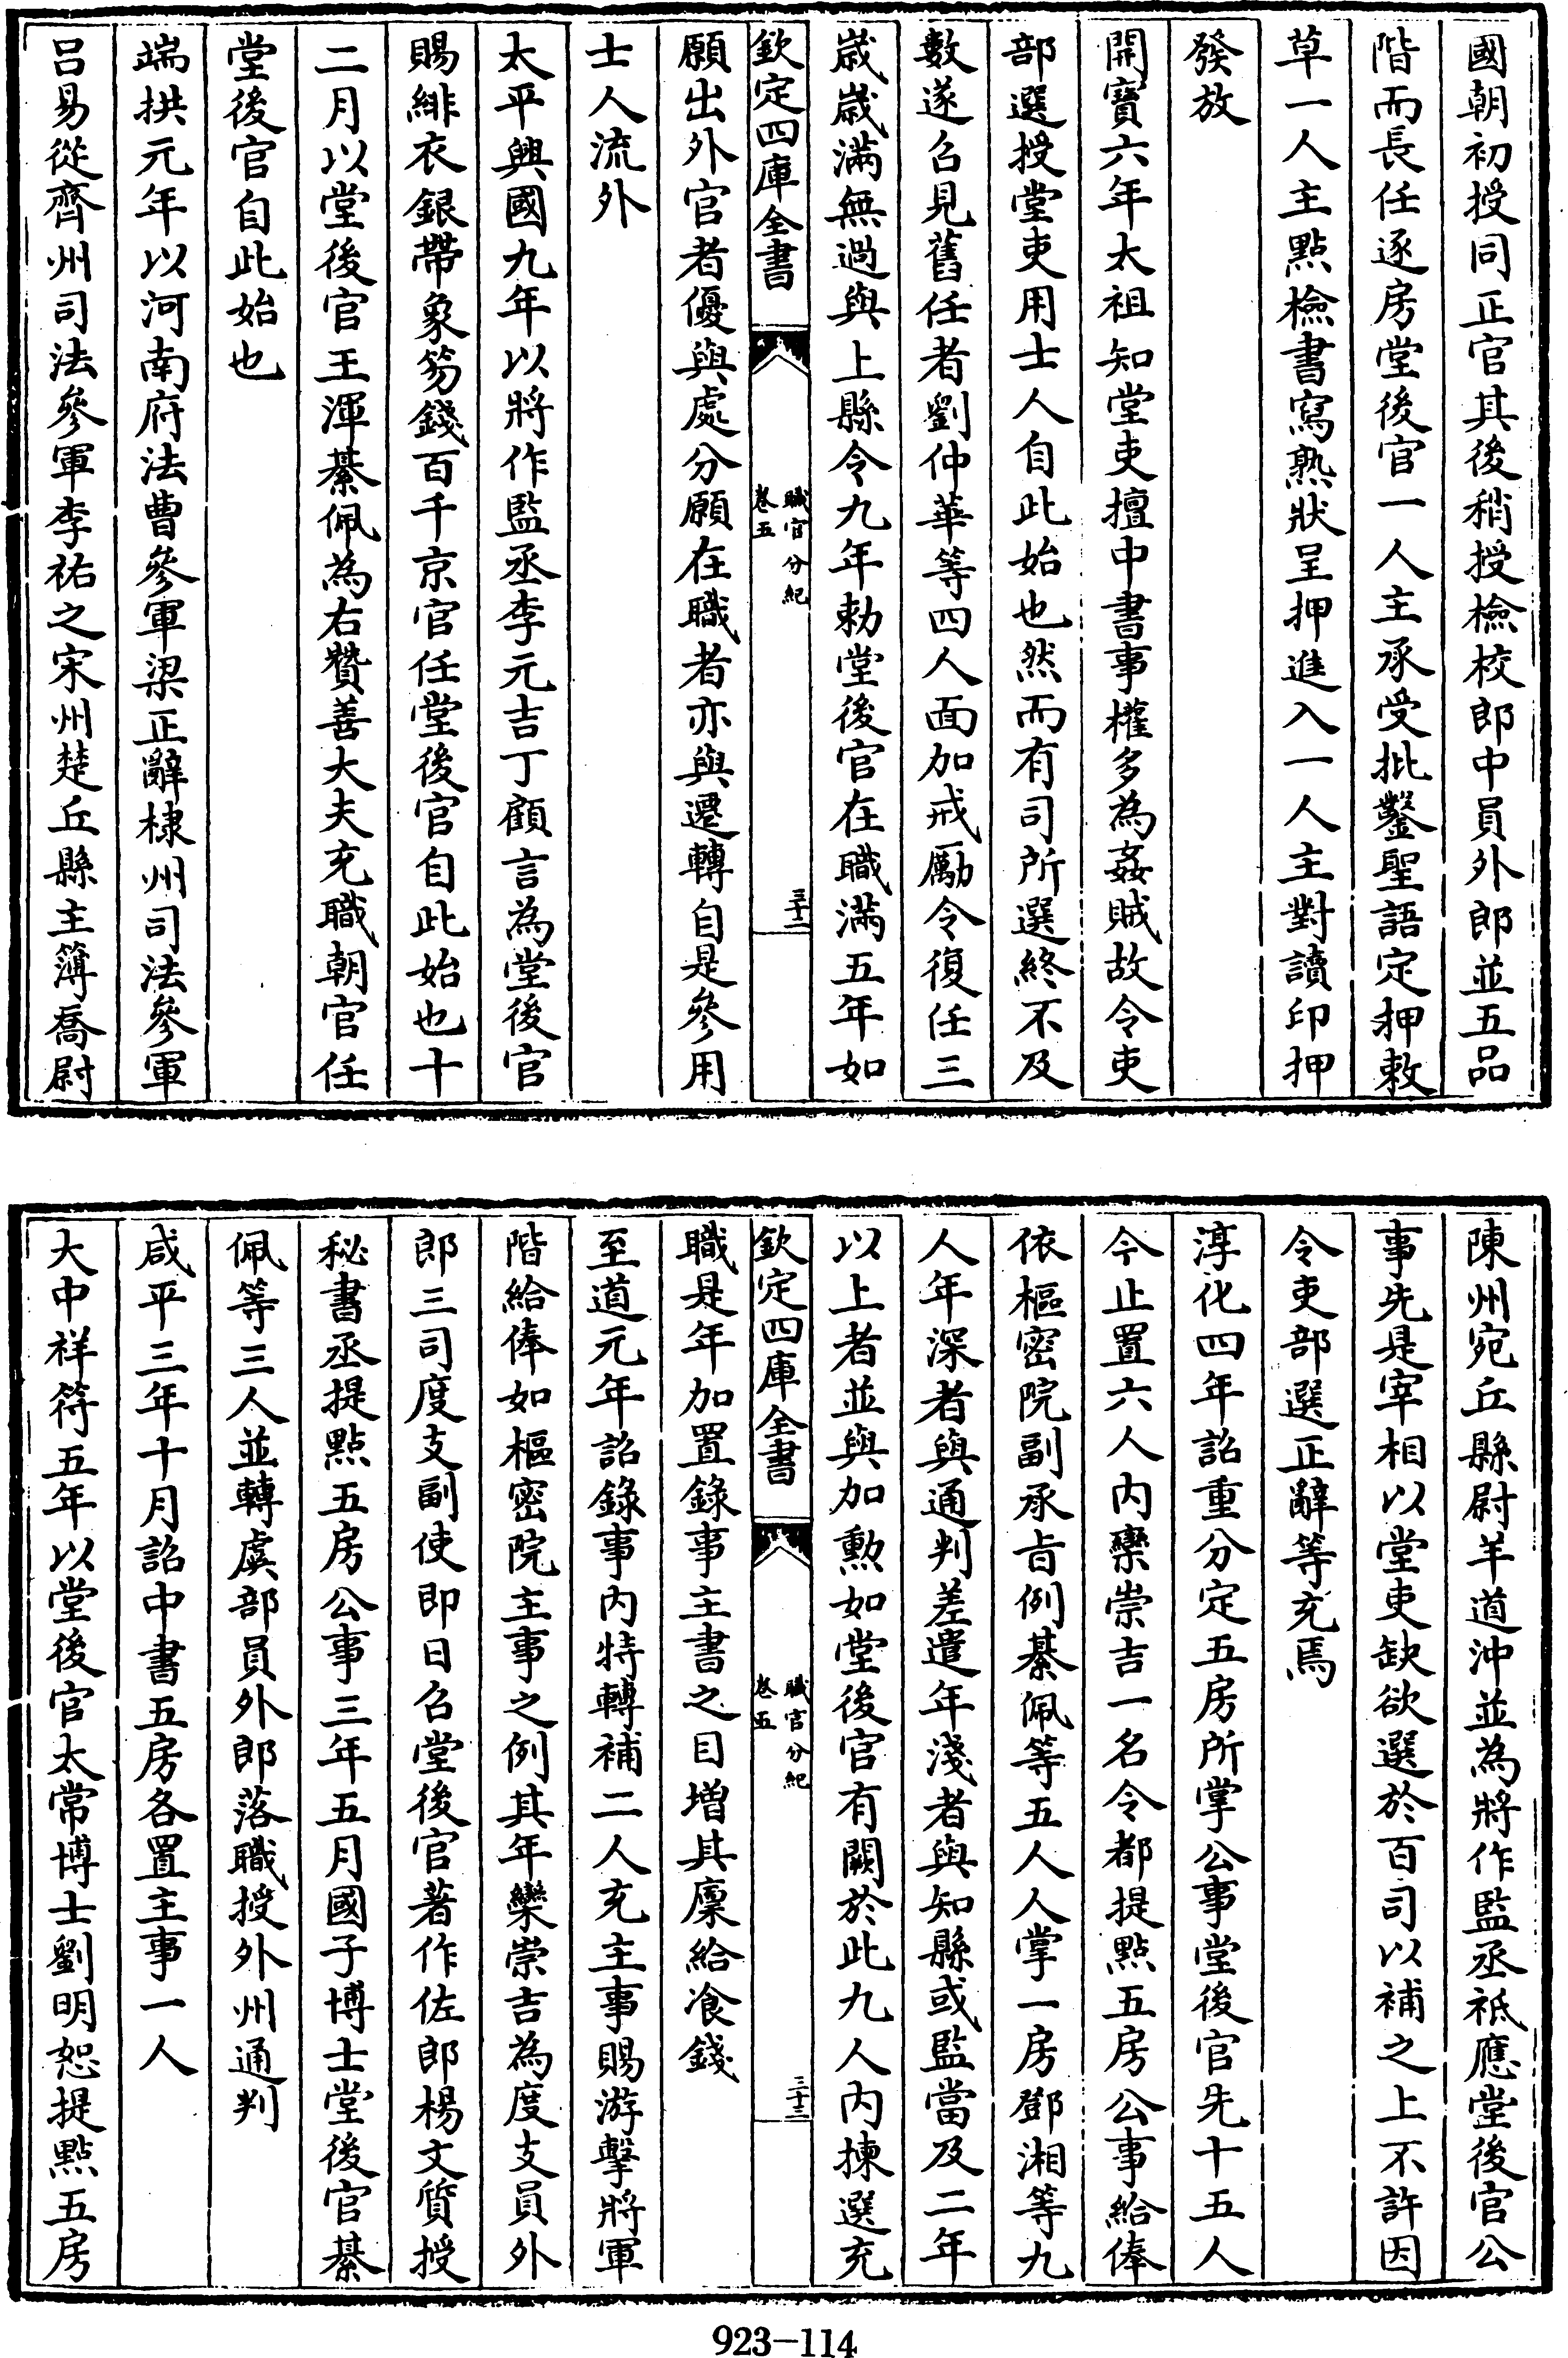 國朝初授同正官其後稍授檢校郎中員外郎並五品
階而長任逐房堂後官一人主承受批鑿聖語定押敕
草一人主點檢書寫熟狀呈押進入一人主對讀印押
發放
開寶六年太祖知堂吏擅中書事權多為姦贓故令吏
部選授堂吏用士人自此始也然而有司所選終不及
數遂召見舊任者劉仲華等四人面加戒勵令復任三
歲歲滿無過與上縣令九年勅堂後官在職滿五年如
欽定四庫全書
職官分紀
卷五
三十二
願出外官者優與處分願在職者亦與遷轉自是參用
士人流外
太平興國九年以將作監丞李元吉丁顧言為堂後官
賜緋衣銀帶象笏錢百千京官任堂後官自此始也十
二月以堂後官王渾綦佩為右贊善大夫充職朝官任
堂後官自此始也
端拱元年以河南府法曹參軍梁正辭棣州司法參軍
呂易從齊州司法參軍李祐之宋州楚丘縣主簿喬尉
陳州宛丘縣尉羊道沖並為將作監丞祗應堂後官公
事先是宰相以堂吏缺欲選於百司以補之上不許因
令吏部選正辭等充焉
淳化四年詔重分定五房所掌公事堂後官先十五人
今止置六人内欒崇吉一名令都提點五房公事給俸
依樞密院副承旨例綦佩等五人人掌一房鄧湘等九
人年深者與通判差遣年淺者與知縣或監當及二年
以上者並與加勲如堂後官有闕於此九人内揀選充
欽定四庫全書
職官分紀
卷五
三十三
職是年加置錄事主書之目增其廩給飡錢
至道元年詔錄事内特轉補二人充主事賜游擊將軍
階給俸如樞密院主事之例其年欒崇吉為度支員外
郎三司度支副使即日召堂後官著作佐郎楊文質授
秘書丞提點五房公事三年五月國子博士堂後官綦
佩等三人並轉虞部員外郎落職授外州通判
咸平三年十月詔中書五房各置主事一人
大中祥符五年以堂後官太常博士劉明恕提點五房
923-114